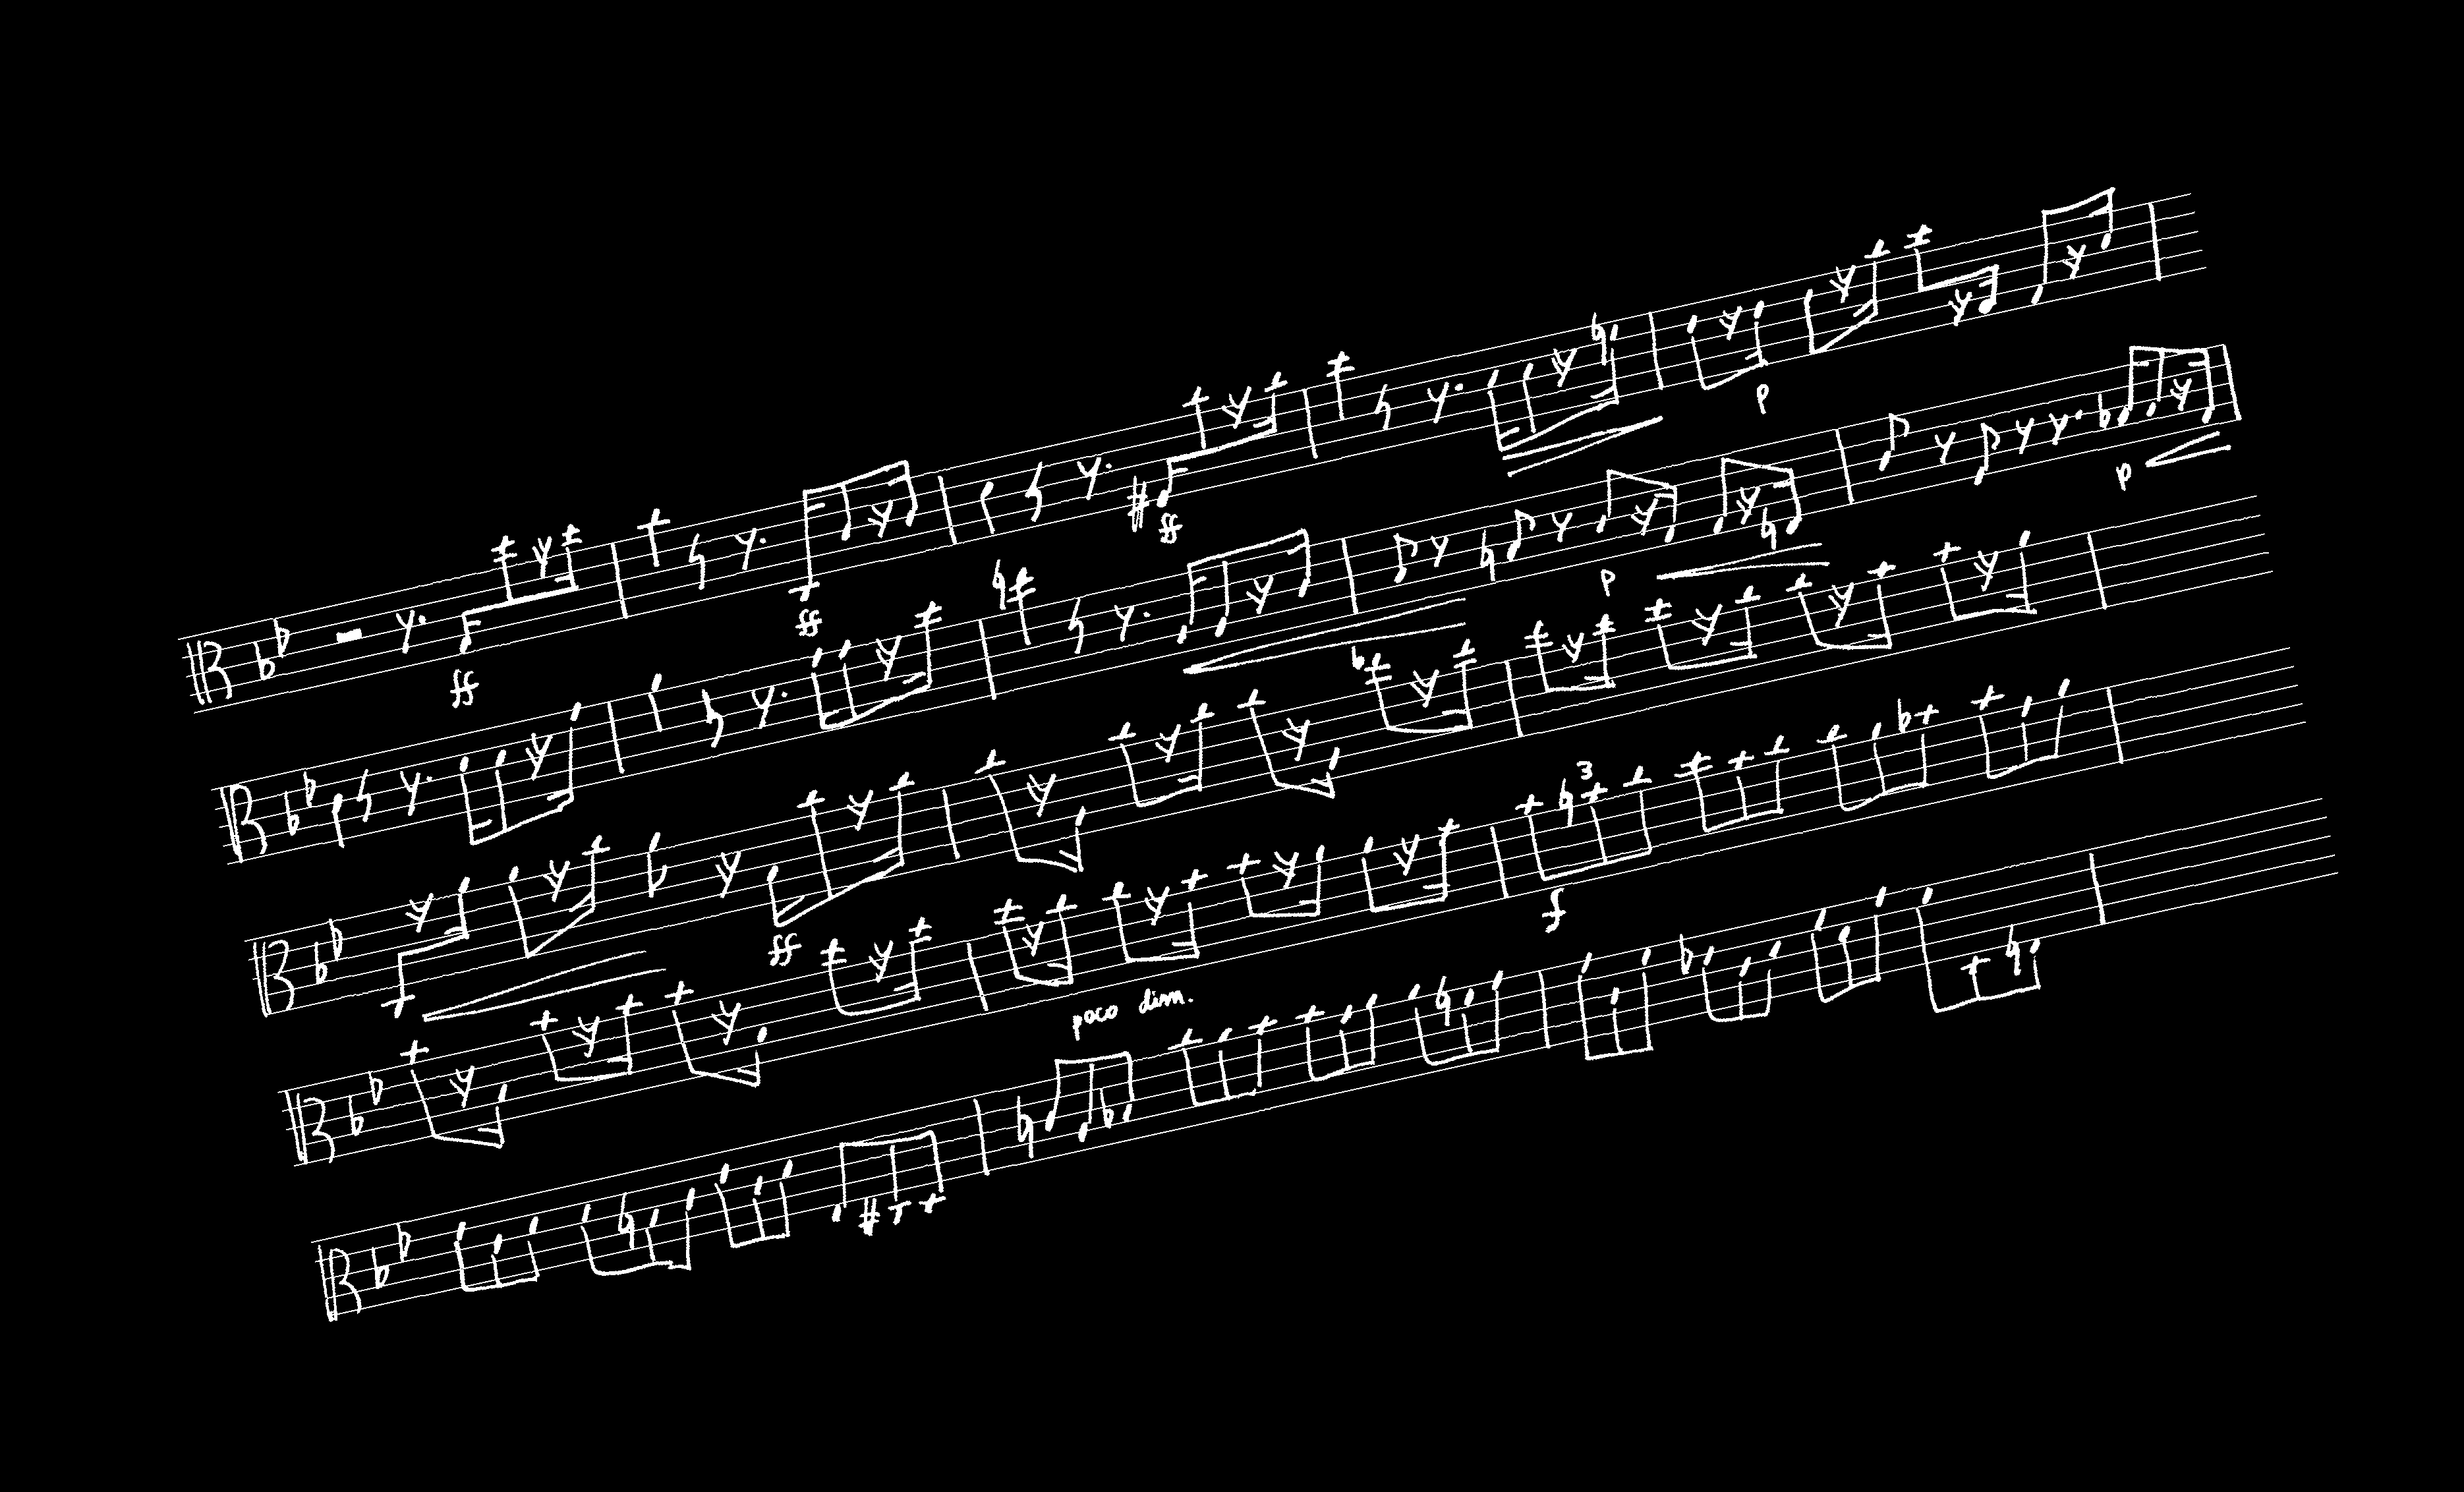 ff ff ff p
p p
ff
poco dim. f 3